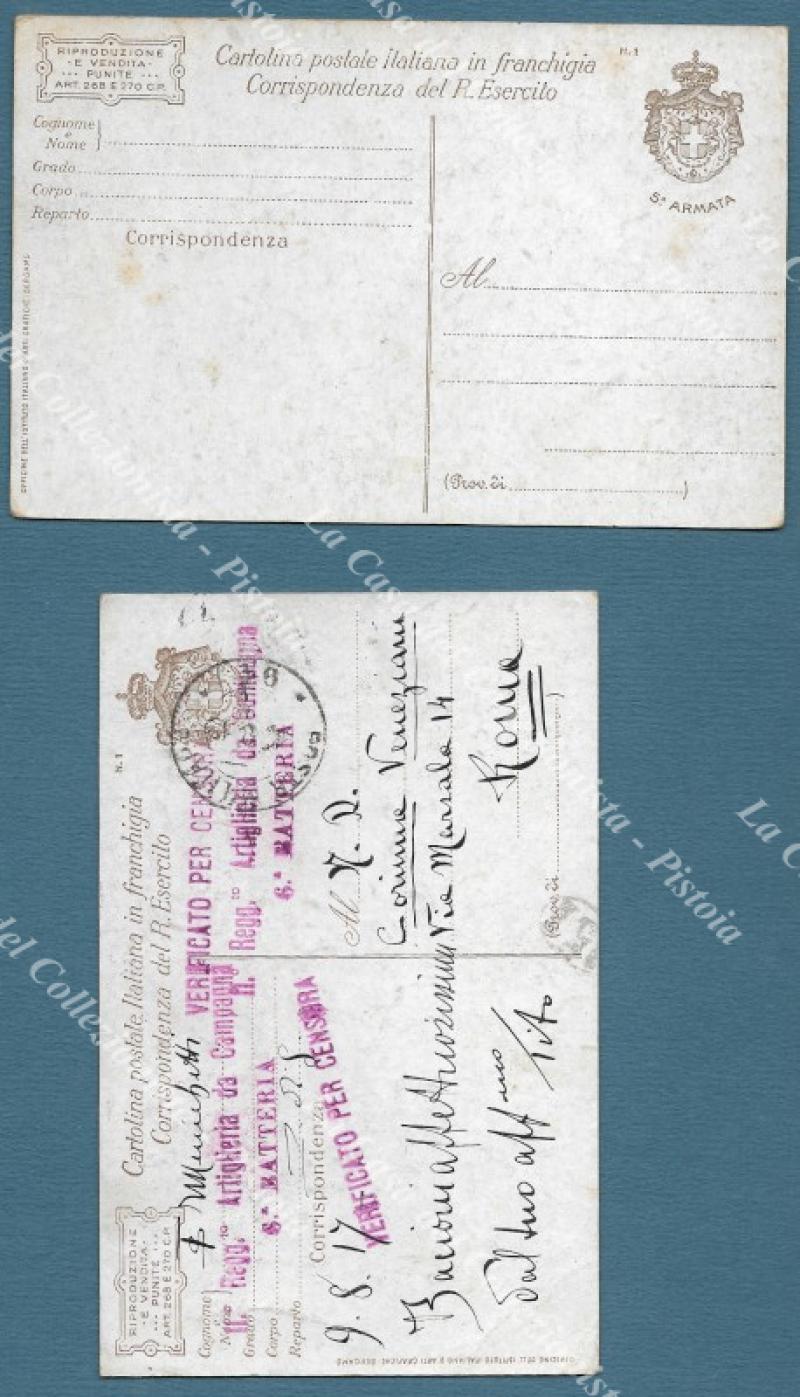 RIPRODUZIONE
E VENDITA
PUNITE
ART. 268 E 270 C.P.
Cartolina postale Italiana in franchigia
Corrispondenza del R. Esercito
N. 1
5ª ARMATA
Cognome
e
Nome
Grado
Corpo
Reparto
Corrispondenza
Al
(Prov. di )
OFFICINE DELL'ISTITUTO ITALIANO D'ARTI GRAFICHE - BERGAMO
RIPRODUZIONE
E VENDITA
PUNITE
ART. 268 E 270 C.P.
Cartolina postale Italiana in franchigia
Corrispondenza del R. Esercito
N. 1
Cognome
e
Nome
Grado
Corpo
Reparto
VERIFICATO PER CENSURA
Regg.to Artiglieria da Campagna
6.ª BATTERIA
Regg.to Artiglieria da Campagna
6.ª BATTERIA
Corrispondenza
VERIFICATO PER CENSURA
9. 8. 17
Bacioni affettuosissimi
dal tuo aff.mo
Tito
Al N. D.
Corinna Veneziani
Via Marsala 14
Roma
(Prov. di )
OFFICINE DELL'ISTITUTO ITALIANO D'ARTI GRAFICHE - BERGAMO
La Casa del Collezionista - Pistoia